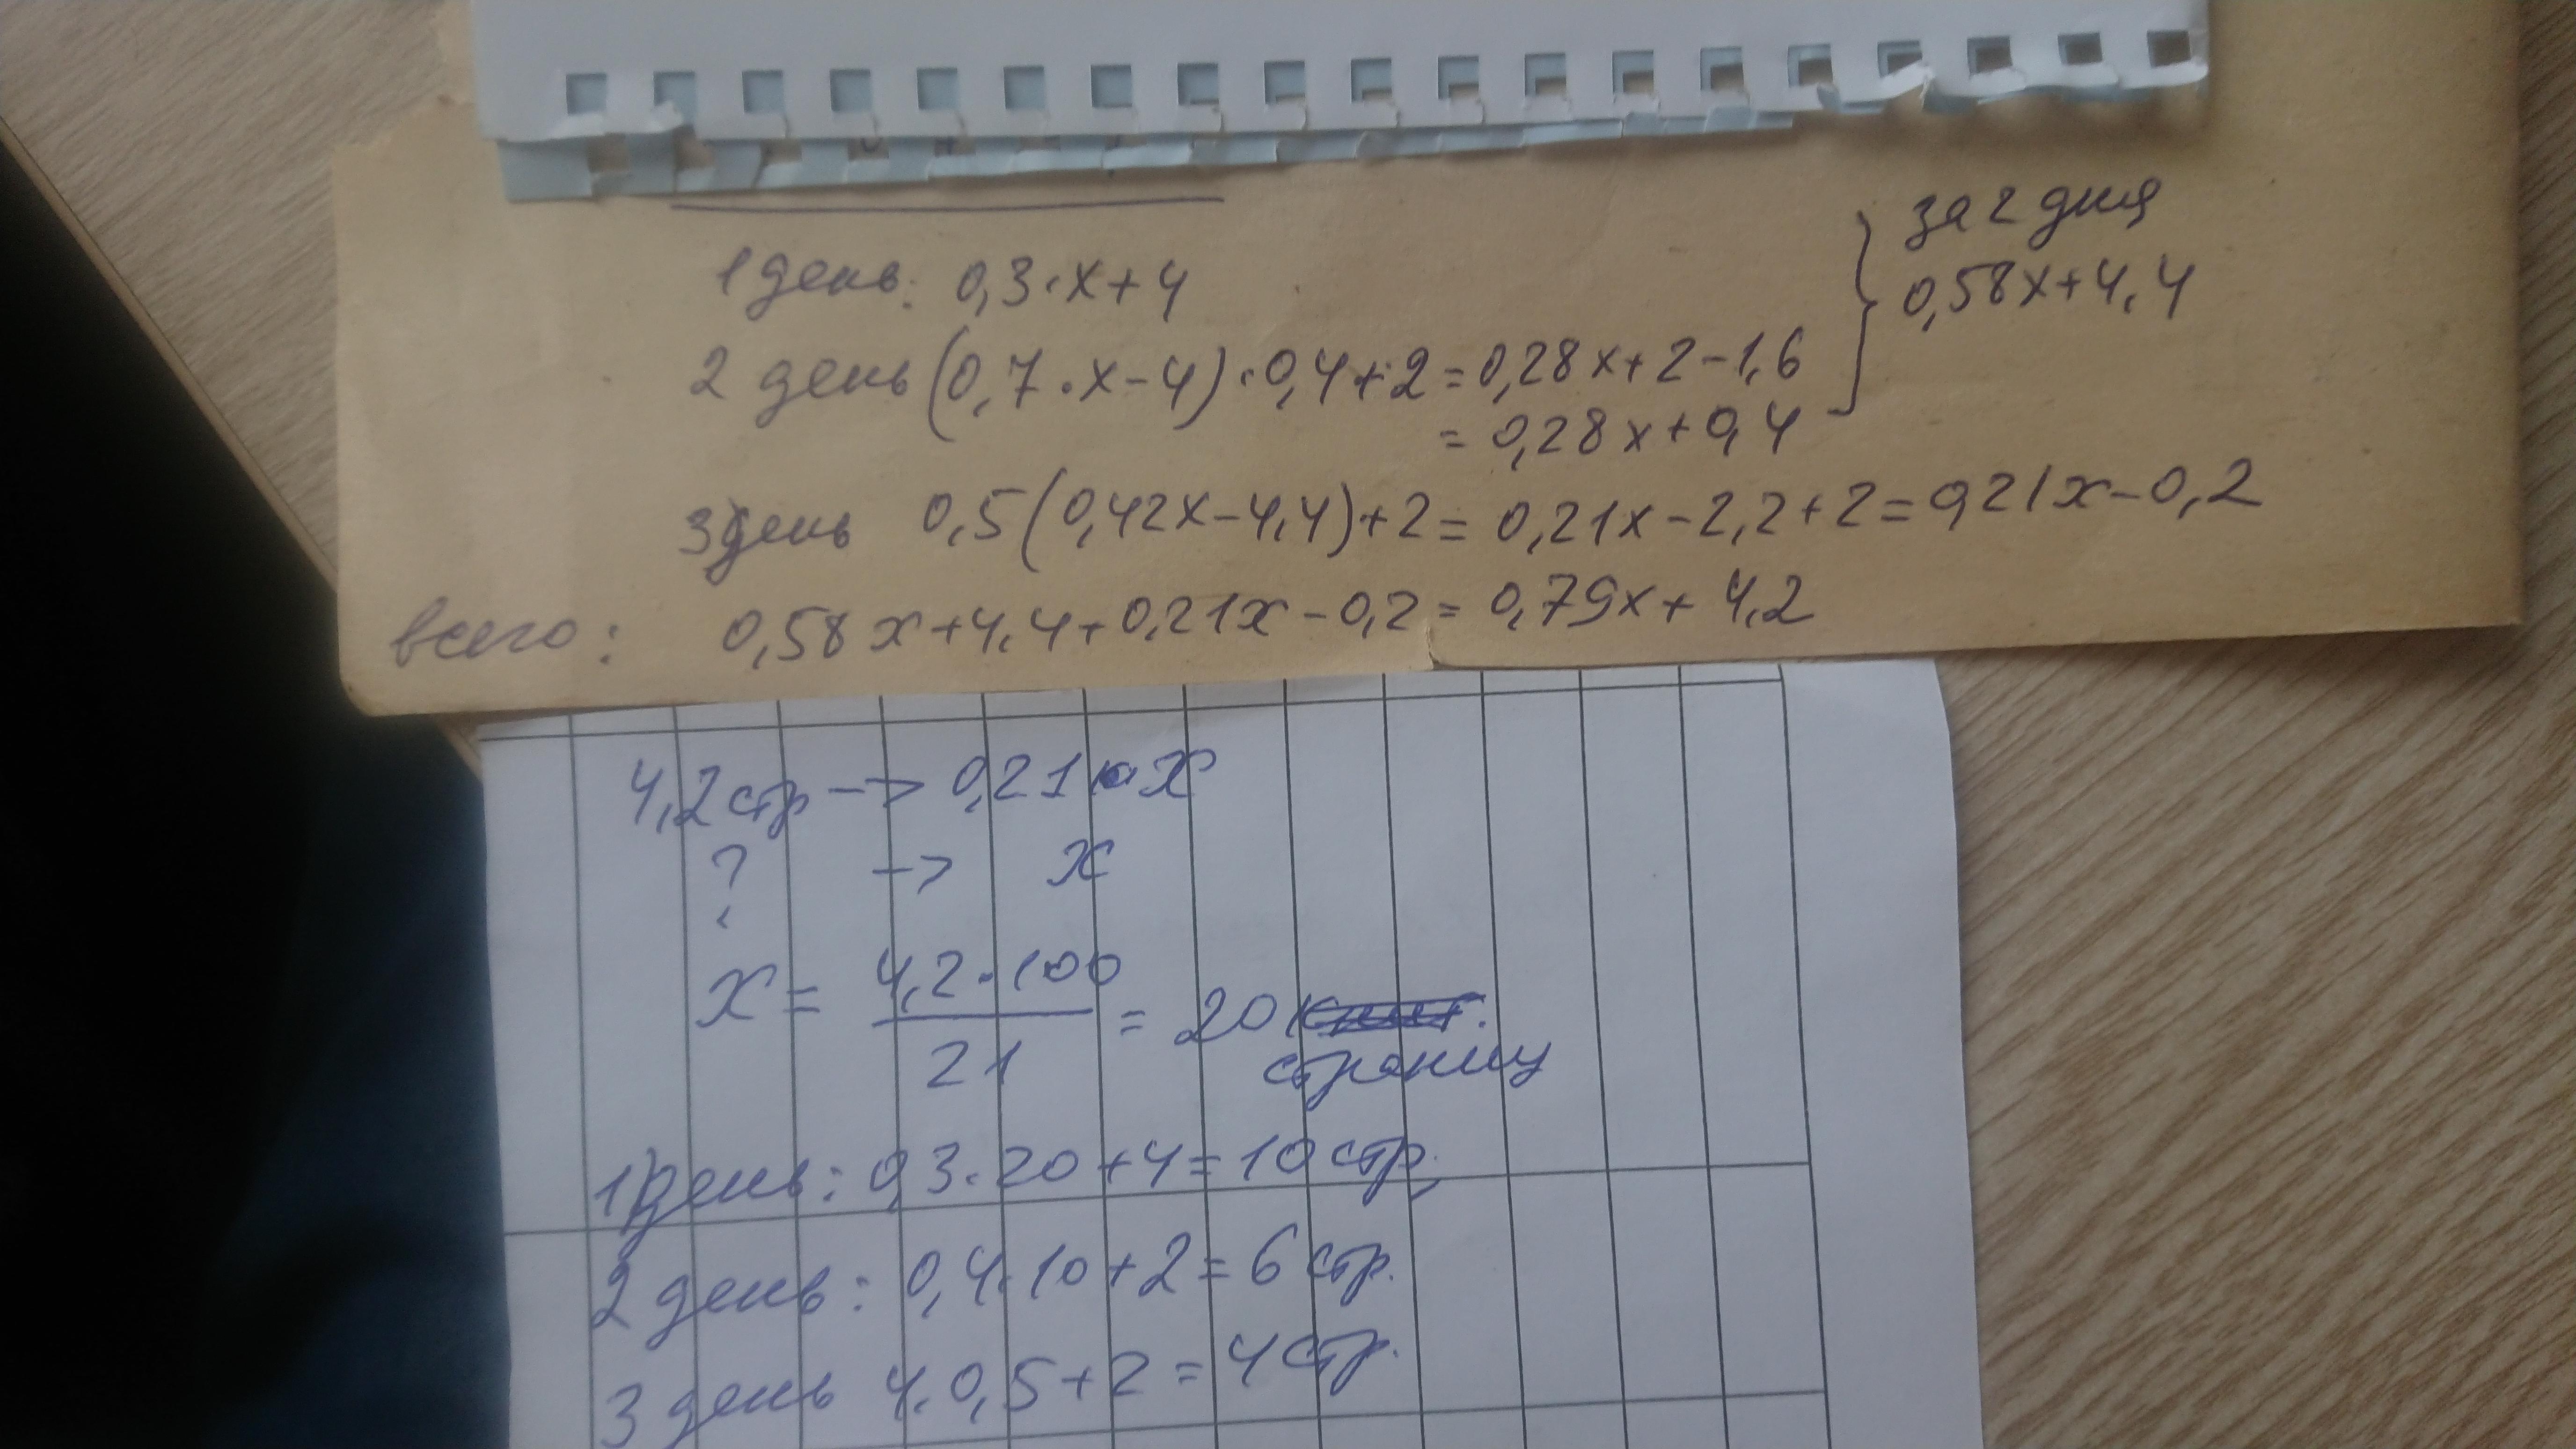 за 2 дня
1 день: 0,3·x+4
0,58x+4,4
2 день (0,7·x-4)·0,4+2=0,28x+2-1,6
=0,28x+0,4
3 день 0,5(0,42x-4,4)+2=0,21x-2,2+2=0,21x-0,2
всего: 0,58x+4,4+0,21x-0,2=0,79x+4,2
4,2 стр -> 0,21 x
? -> x
x = 4,2·100
21
= 20
страниц
1 день: 0,3·20+4=10 стр.
2 день: 0,4·10+2=6 стр.
3 день 4·0,5+2=4 стр.